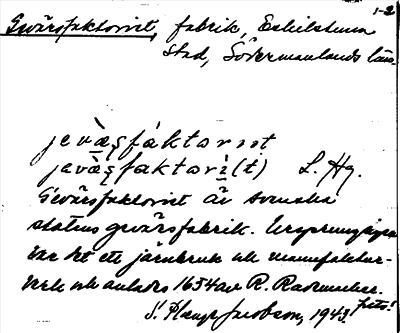 1-2
Gevärsfaktoriet, fabrik, Eskilstuna
stad, Södermanlands län.
jevæ̀ʂfáktorııt
jevæ̀ʂfaktorì(t) L. Hg.
Gevärsfaktoriet är svenska
statens gevärsfabrik. Ursprungligen
var det ett järnbruk och manufaktur-
verk och anlades 1654 av R. Rademacher.
foto!
1943.